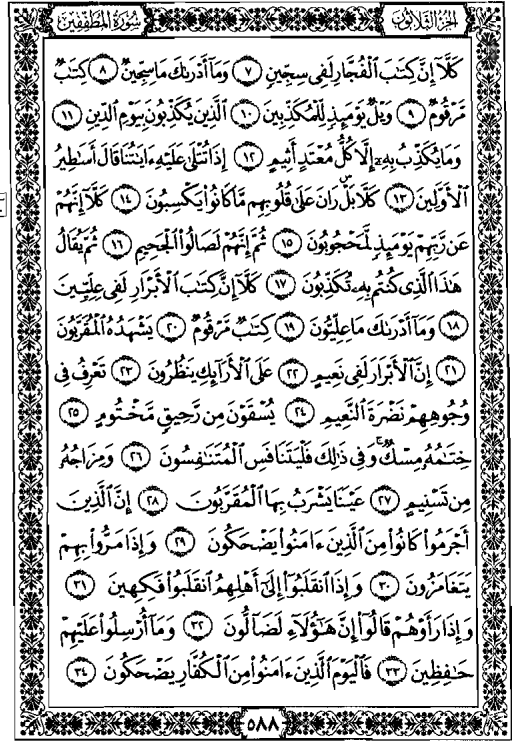 سُورَةُ المُطَفِّفِينَ الجُزْءُ الثَّلَاثُونَ
كَلَّآ إِنَّ كِتَٰبَ ٱلْفُجَّارِ لَفِى سِجِّينٍ ٧ وَمَآ أَدْرَىٰكَ مَا سِجِّينٌ ٨ كِتَٰبٌ
مَّرْقُومٌ ٩ وَيْلٌ يَوْمَئِذٍ لِّلْمُكَذِّبِينَ ١٠ ٱلَّذِينَ يُكَذِّبُونَ بِيَوْمِ ٱلدِّينِ ١١
وَمَا يُكَذِّبُ بِهِۦٓ إِلَّا كُلُّ مُعْتَدٍ أَثِيمٍ ١٢ إِذَا تُتْلَىٰ عَلَيْهِ ءَايَٰتُنَا قَالَ أَسَٰطِيرُ
ٱلْأَوَّلِينَ ١٣ كَلَّا بَلْ رَانَ عَلَىٰ قُلُوبِهِم مَّا كَانُوا۟ يَكْسِبُونَ ١٤ كَلَّآ إِنَّهُمْ
عَن رَّبِّهِمْ يَوْمَئِذٍ لَّمَحْجُوبُونَ ١٥ ثُمَّ إِنَّهُمْ لَصَالُوا۟ ٱلْجَحِيمِ ١٦ ثُمَّ يُقَالُ
هَٰذَا ٱلَّذِى كُنتُم بِهِۦ تُكَذِّبُونَ ١٧ كَلَّآ إِنَّ كِتَٰبَ ٱلْأَبْرَارِ لَفِى عِلِّيِّينَ
١٨ وَمَآ أَدْرَىٰكَ مَا عِلِّيُّونَ ١٩ كِتَٰبٌ مَّرْقُومٌ ٢٠ يَشْهَدُهُ ٱلْمُقَرَّبُونَ
٢١ إِنَّ ٱلْأَبْرَارَ لَفِى نَعِيمٍ ٢٢ عَلَى ٱلْأَرَآئِكِ يَنظُرُونَ ٢٣ تَعْرِفُ فِى
وُجُوهِهِمْ نَضْرَةَ ٱلنَّعِيمِ ٢٤ يُسْقَوْنَ مِن رَّحِيقٍ مَّخْتُومٍ ٢٥
خِتَٰمُهُۥ مِسْكٌ ۚ وَفِى ذَٰلِكَ فَلْيَتَنَافَسِ ٱلْمُتَنَٰفِسُونَ ٢٦ وَمِزَاجُهُۥ
مِن تَسْنِيمٍ ٢٧ عَيْنًا يَشْرَبُ بِهَا ٱلْمُقَرَّبُونَ ٢٨ إِنَّ ٱلَّذِينَ
أَجْرَمُوا۟ كَانُوا۟ مِنَ ٱلَّذِينَ ءَامَنُوا۟ يَضْحَكُونَ ٢٩ وَإِذَا مَرُّوا۟ بِهِمْ
يَتَغَامَزُونَ ٣٠ وَإِذَا ٱنقَلَبُوٓا۟ إِلَىٰٓ أَهْلِهِمُ ٱنقَلَبُوا۟ فَكِهِينَ ٣١
وَإِذَا رَأَوْهُمْ قَالُوٓا۟ إِنَّ هَٰٓؤُلَآءِ لَضَآلُّونَ ٣٢ وَمَآ أُرْسِلُوا۟ عَلَيْهِمْ
حَٰفِظِينَ ٣٣ فَٱلْيَوْمَ ٱلَّذِينَ ءَامَنُوا۟ مِنَ ٱلْكُفَّارِ يَضْحَكُونَ ٣٤
٥٨٨